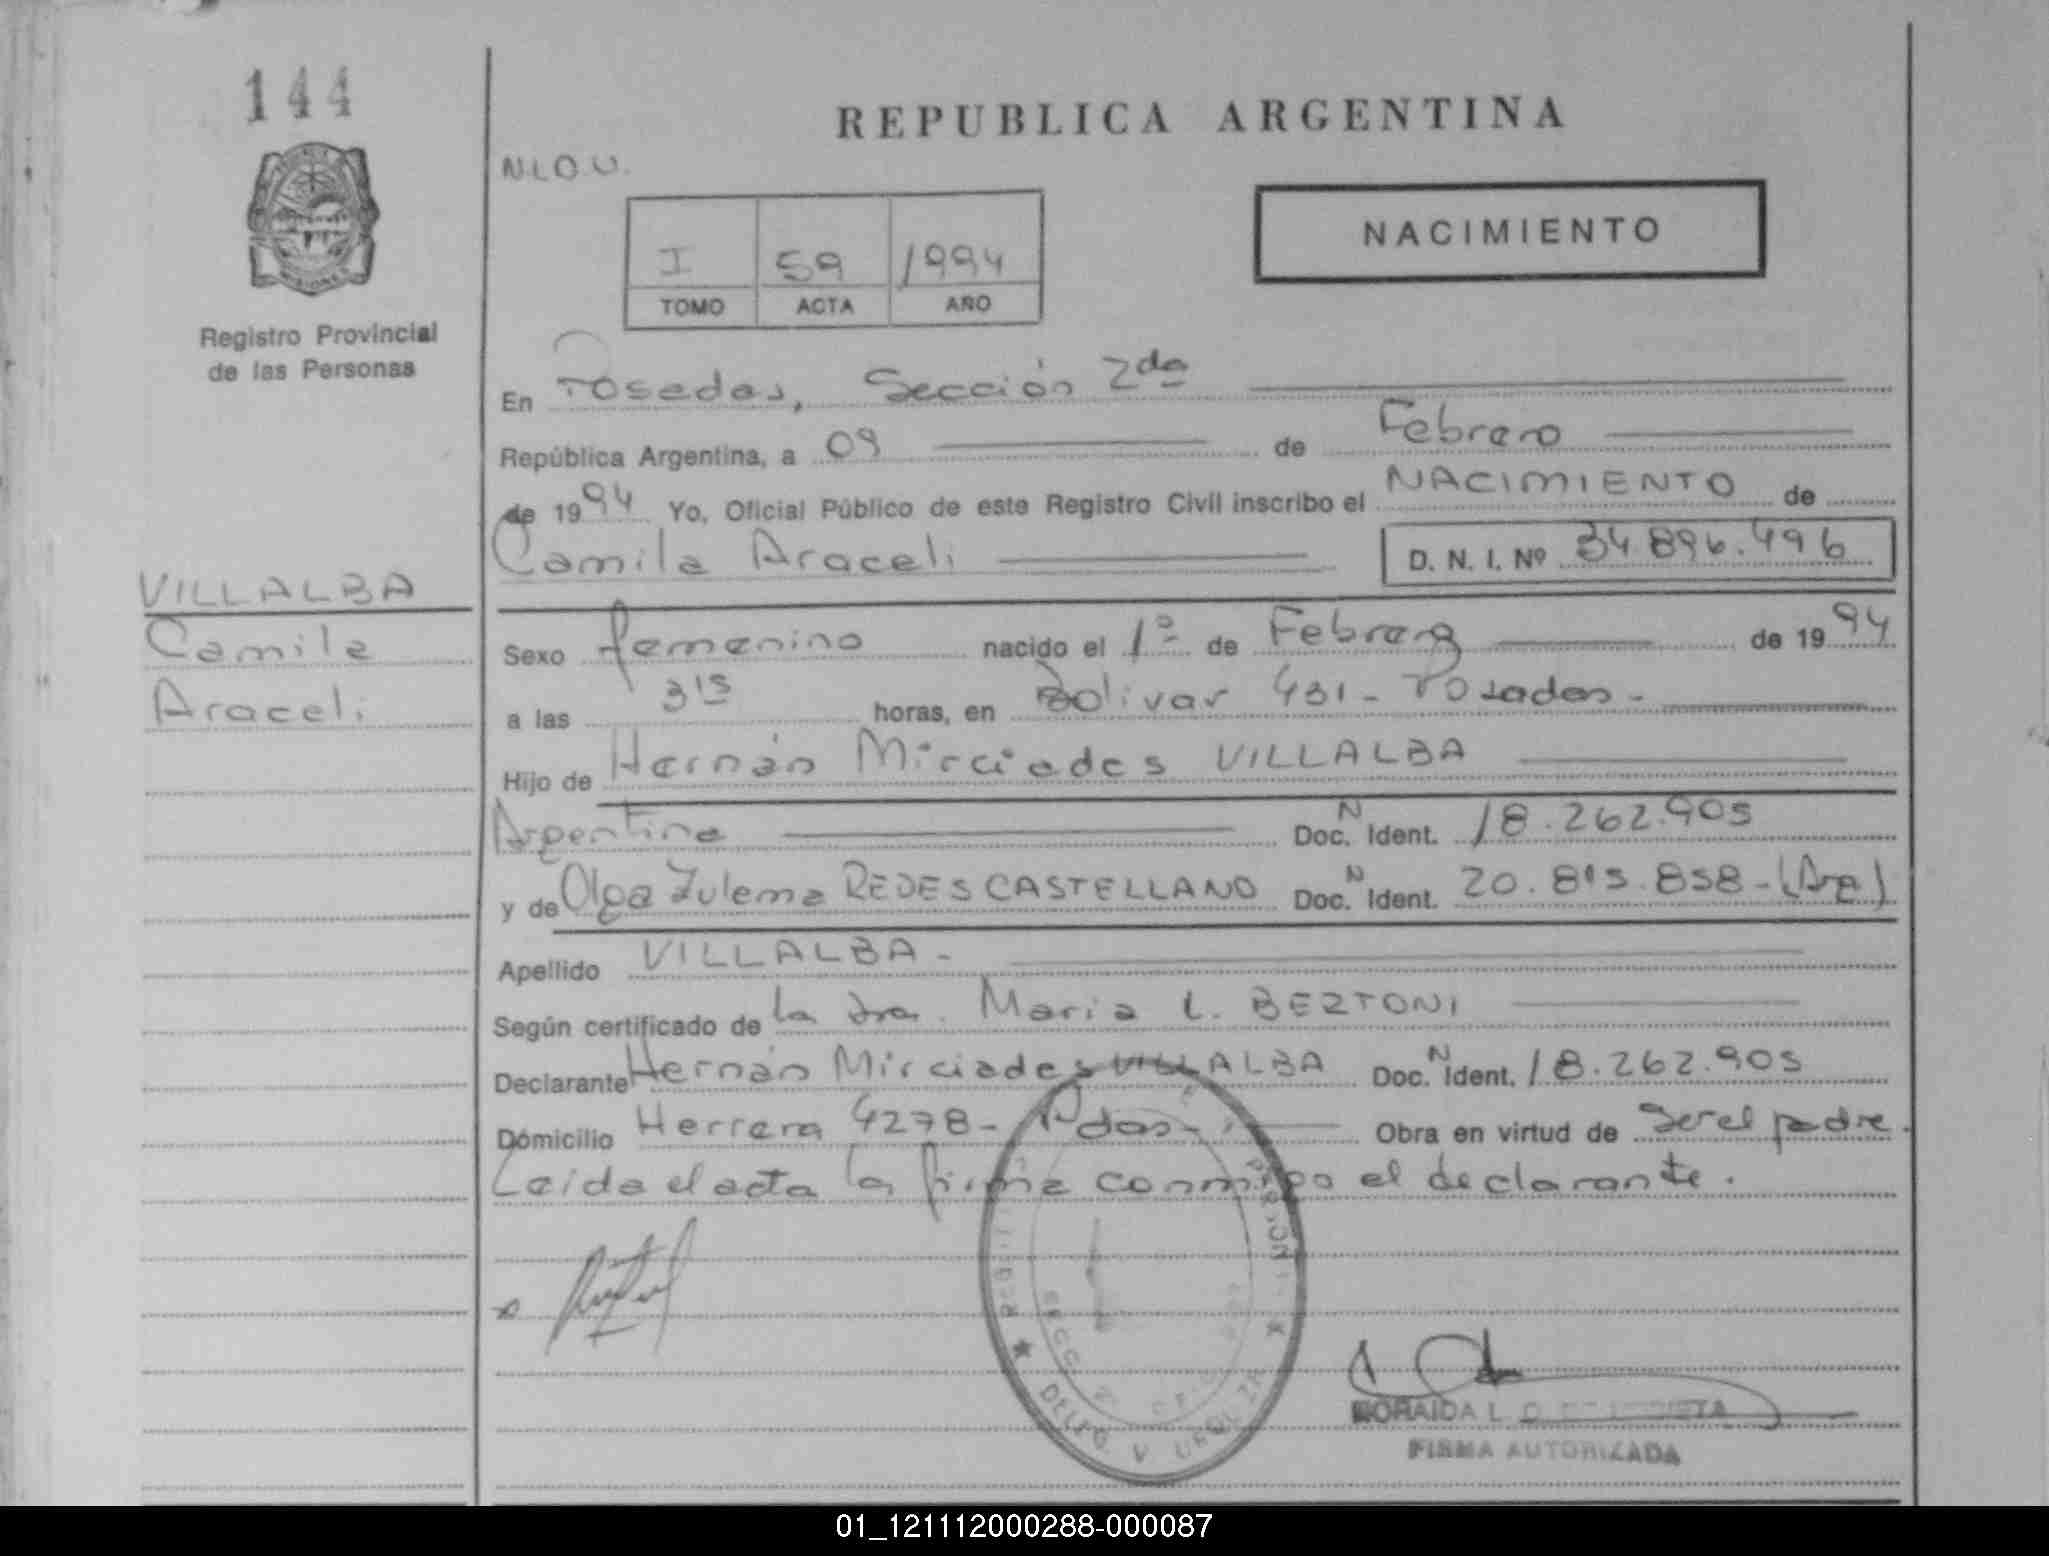 144
REPUBLICA ARGENTINA
N.L.O.U.
NACIMIENTO
I 59 1994
TOMO ACTA AÑO
Registro Provincial
de las Personas
En Posadas, Sección 2da
República Argentina, a 09 de Febrero
de 1994 Yo, Oficial Público de este Registro Civil inscribo el NACIMIENTO de
Camila Araceli D. N. I. Nº 34.896.496
VILLALBA
Camila
Araceli
Sexo femenino nacido el 1º de Febrero de 1994
a las 3 15 horas, en Bolivar 431 - Posadas -
Hijo de Hernán Mirciades VILLALBA
Argentina Doc. N Ident. 18.262.905
y de Olga Zulema REDES CASTELLANO Doc. N Ident. 20.815.858 - (Arg)
Apellido VILLALBA -
Según certificado de la Dra. Maria L. BERTONI
Declarante Hernán Mirciades VILLALBA Doc. N Ident. 18.262.905
Domicilio Herrera 4278 - Pdas - Obra en virtud de ser el padre.
Leida el acta la firma conmigo el declarante.
FIRMA AUTORIZADA
01_121112000288-000087